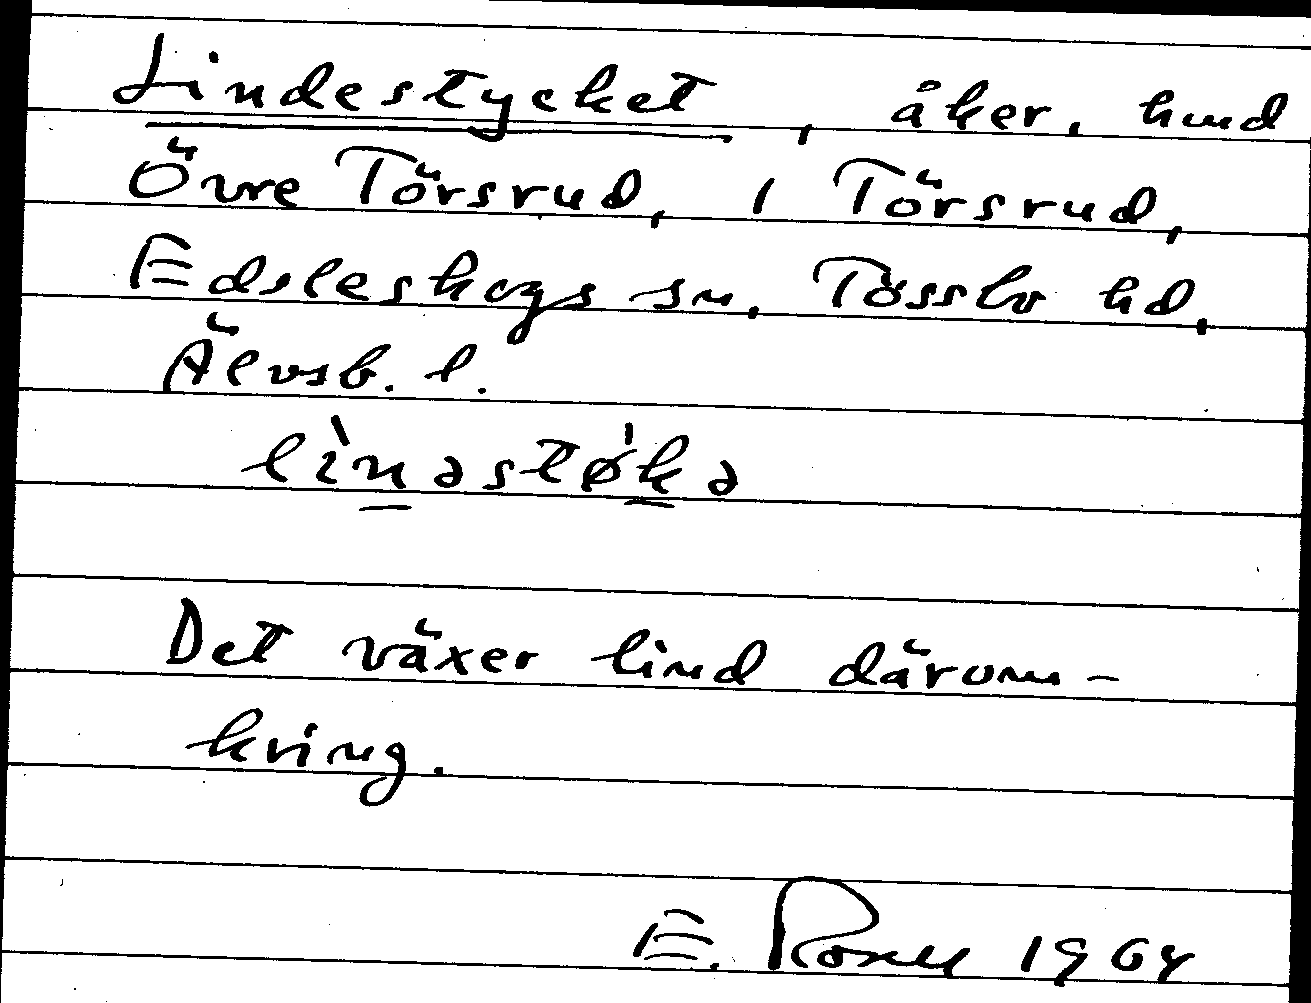 Lindestycket, åker, hmd
Övre Törsrud, 1 Törsrud,
Edsleskogs sn, Tössbo hd,
Älvsb. l.
lìnəstø'kə
Det växer lind därom-
kring.
E. 1964